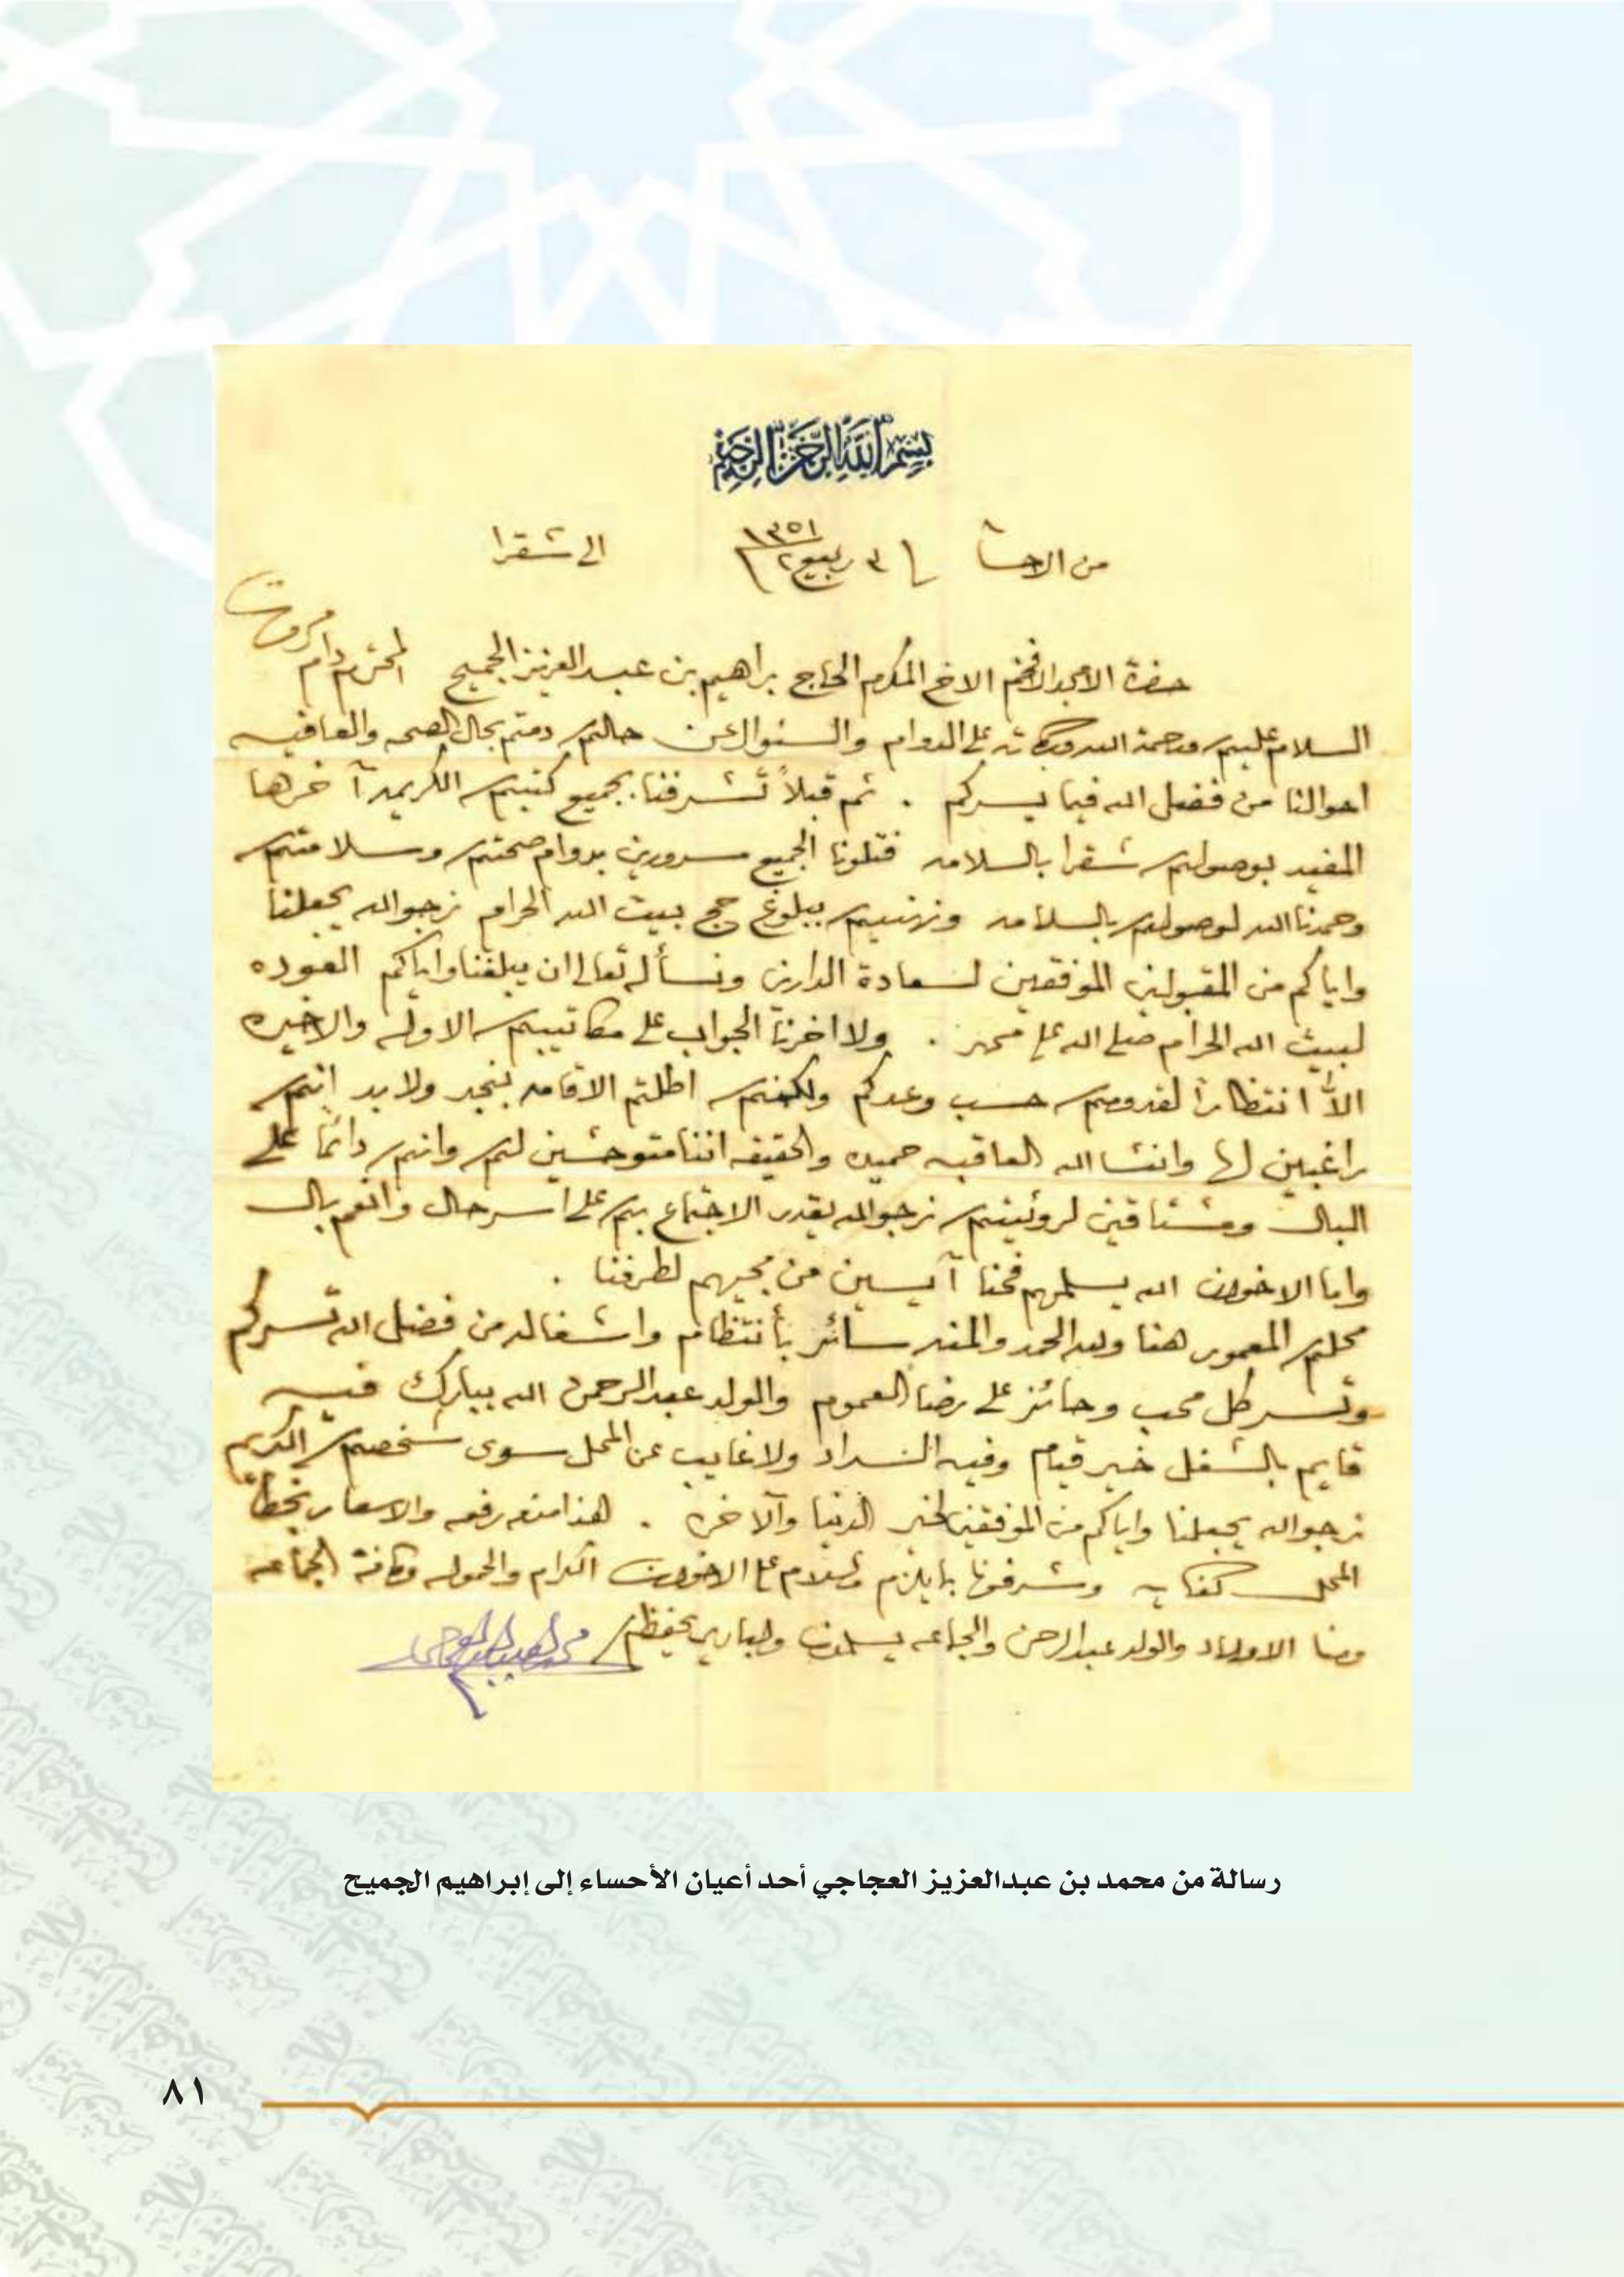 بسم الله الرحمن الرحيم
من الاحسا ٣ ربيع٢ ١٣٥١ الى شقرا
حضرة الامجد الافخم الاخ المكرم الحاج براهيم بن عبد العزيز الجميح المحترم دام
السلام عليكم ورحمة الله وبركاته على الدوام والسئوال عن حالكم دمتم بحال الصحه والعافيه
احوالنا من فضل الله فيما يسركم . ثم قبلاً تشرفنا بجميع كتبكم الكريمه آخرها
المفيد بوصولكم شقرا بالسلامه فتلونا الجميع مسرورين بدوام صحتكم وسلامتكم
وحمدنا الله لوصولكم بالسلامه ونهنيكم ببلوغ حج بيت الله الحرام نرجو الله يجعلنا
واياكم من المقبولين الموفقين لسعادة الدارين ونسأله تعالى ان يبلغنا واياكم العوده
لبيت الله الحرام صلى الله على محمد . ولا اخرنا الجواب على مكاتيبكم الاوله والاخيره
الاّ انتظاراً لقدومكم حسب وعدكم ولكنكم اطلتم الاقامه بنجد ولا بد انكم
راغبين لها وانشا الله العاقبه حميده والحقيقه اننا متوحشين لكم وانتم دائماً على
البال ومشتاقين لرؤيتكم نرجو الله يقدر الاجتماع بكم على اسر حال وانعم بال
واما الاخوان الله يسلمهم فحنا آيسين من مجيهم لطرفنا .
محلكم المعمور هنا ولله الحمد والمنه سائر بأنتظام واشغاله من فضل الله تسركم
وتسر كل محب وحائز على رضا العموم والولد عبد الرحمن الله يبارك فيه
قايم بالشغل خير قيام وفيه السداد ولا غايب عن المحل سوى شخصكم الكريم
نرجو الله يجعلنا واياكم من الموفقين لخير الدنيا والآخره . هذا منه رفعه والاسعار بخط
المحل كفايه وشرفونا بمايلزم والسلام على الاخوان الكرام والحموله وكافة الجماعه
ومنا الاولاد والولد عبد الرحمن والجماعه يسلمون والباري يحفظكم
رسالة من محمد بن عبدالعزيز العجاجي أحد أعيان الأحساء إلى إبراهيم الجميح
٨١